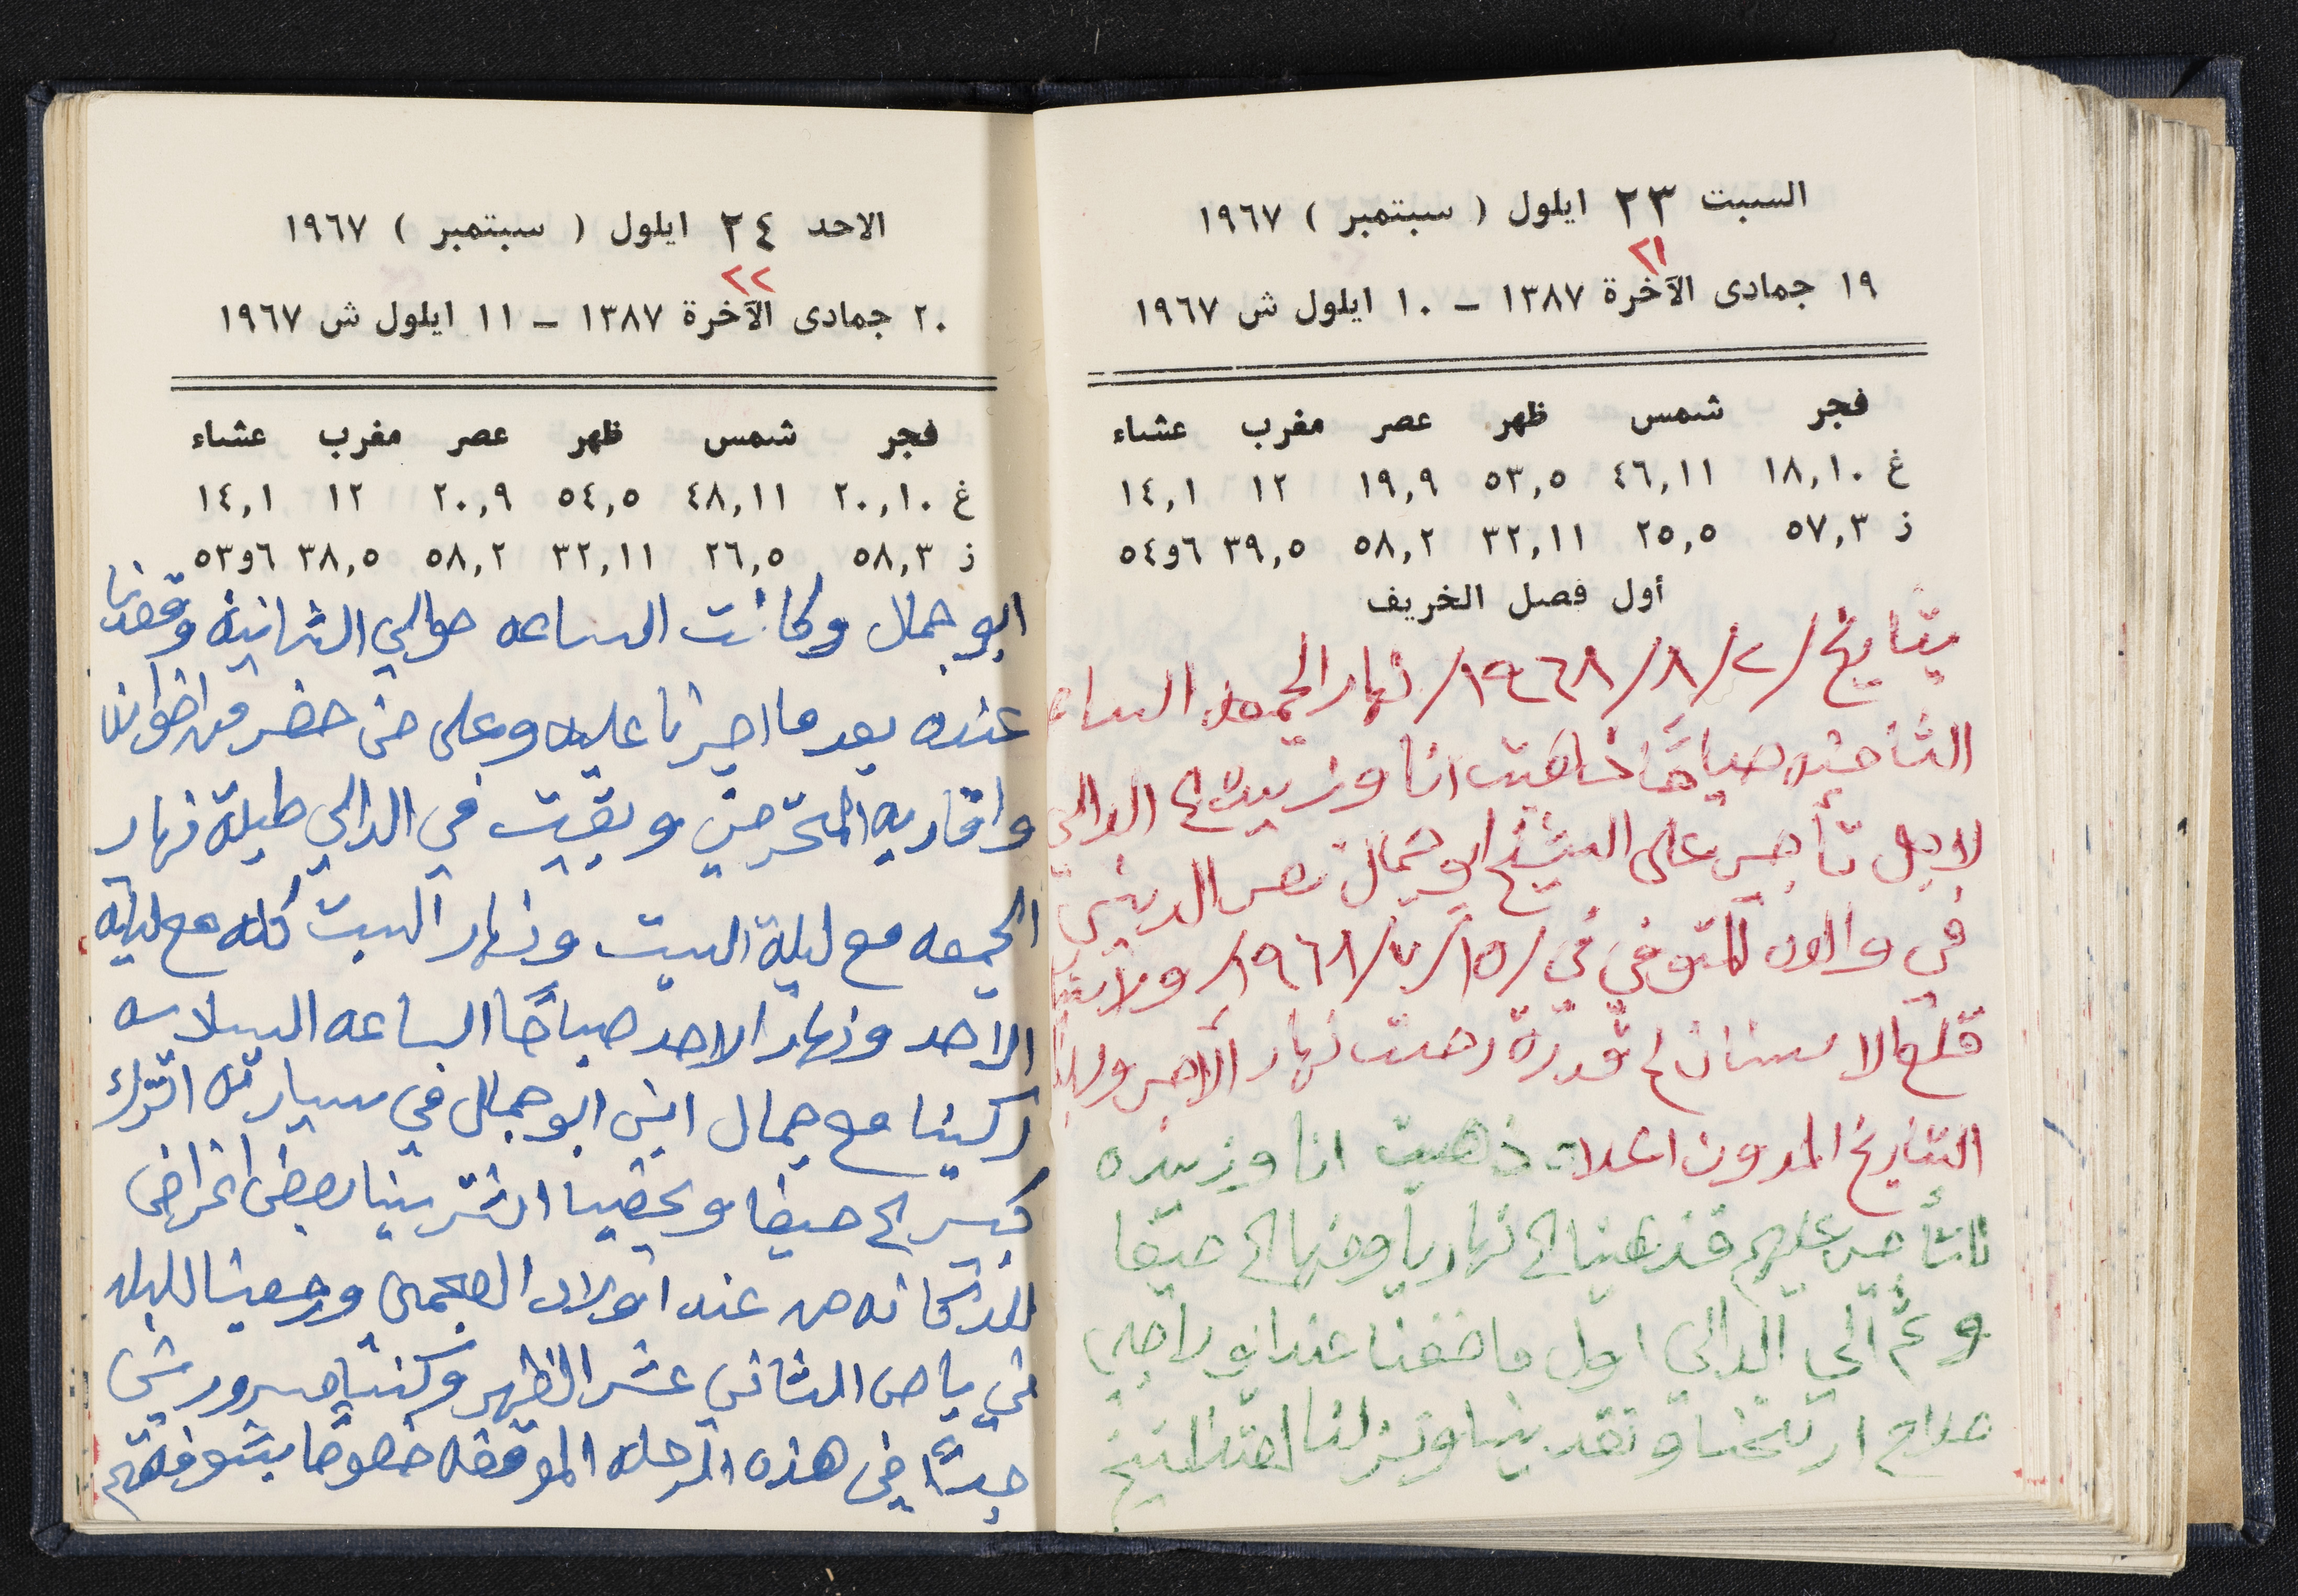 السبت ٢٣ ايلول ( سبتمبر ) ١٩٦٧
٢١
١٩ جمادى الآخرة ١٣٨٧ – ١٠ ايلول ش ١٩٦٧
فجر شمس ظهر عصر مغرب عشاء
غ ١٨,١٠ ٤٦,١١ ٥٣,٥ ١٩,٩ ١٢ ١٤,١
ز ٥٧,٣ ٢٥,٥ ٣٢,١١ ٥٨,٢ ٣٩,٥ ٦و٥٤
أول فصل الخريف
بتاريخ /١٩٦٨/٨/٢/ نهار الجمعه الساعه
الثامنه صباحًا ذهبت انا وزبيده الى الدالي
لاجل نأجر على الشيخ ابو جمال نصر الدين
في والده المتوفي في /١٩٦٨/٧/١٥/
قلع الاسنان رحت نهار
التاريخ المدون اعلاه ذهبت انا وزبيده
نأجر عليهم فذهبنا الى نهاريا ومنها الى حيفا
و ثم الي الدالي اول ما ضفنا عند ابو لاجي
صلاح ارتحنا وتغدينا ونزلنا لعند الشيخ
الاحد ٢٤ ايلول ( سبتمبر ) ١٩٦٧
٢٢
٢٠ جمادى الآخرة ١٣٨٧ – ١١ ايلول ش ١٩٦٧
فجر شمس ظهر عصر مغرب عشاء
غ ٢٠,١٠ ٤٨,١١ ٥٤,٥ ٢٠,٩ ١٢ ١٤,١
ز ٥٨,٣ ٢٦,٥ ٣٢,١١ ٥٨,٢ ٣٨,٥ ٦و٥٣
ابو جمال وكانت الساعه حوالي الثانية وقعدنا
عنده بعد ما اجرنا عليه وعلى من حضر من اخوانه
واقاربه المحترمين وبقيت في الدالي طيلة نهار
الجمعه مع ليلة السبت ونهار السبت كله مع ليلة
الاحد ونهار الاحد صباحًا الساعه السادسه
ركبنا مع جمال ابن ابو جمال في سيارته اترك
كبير الى حيفا وبحيفا اشترينا بعض اغراض
للدكانه من عند اولاد العجمي ورجعنا للبلد
في باص الثاني عشر الظهر وكنت مسرور
جدًا في هذه الرحله الموفقه خصوصًا بشوفتهم